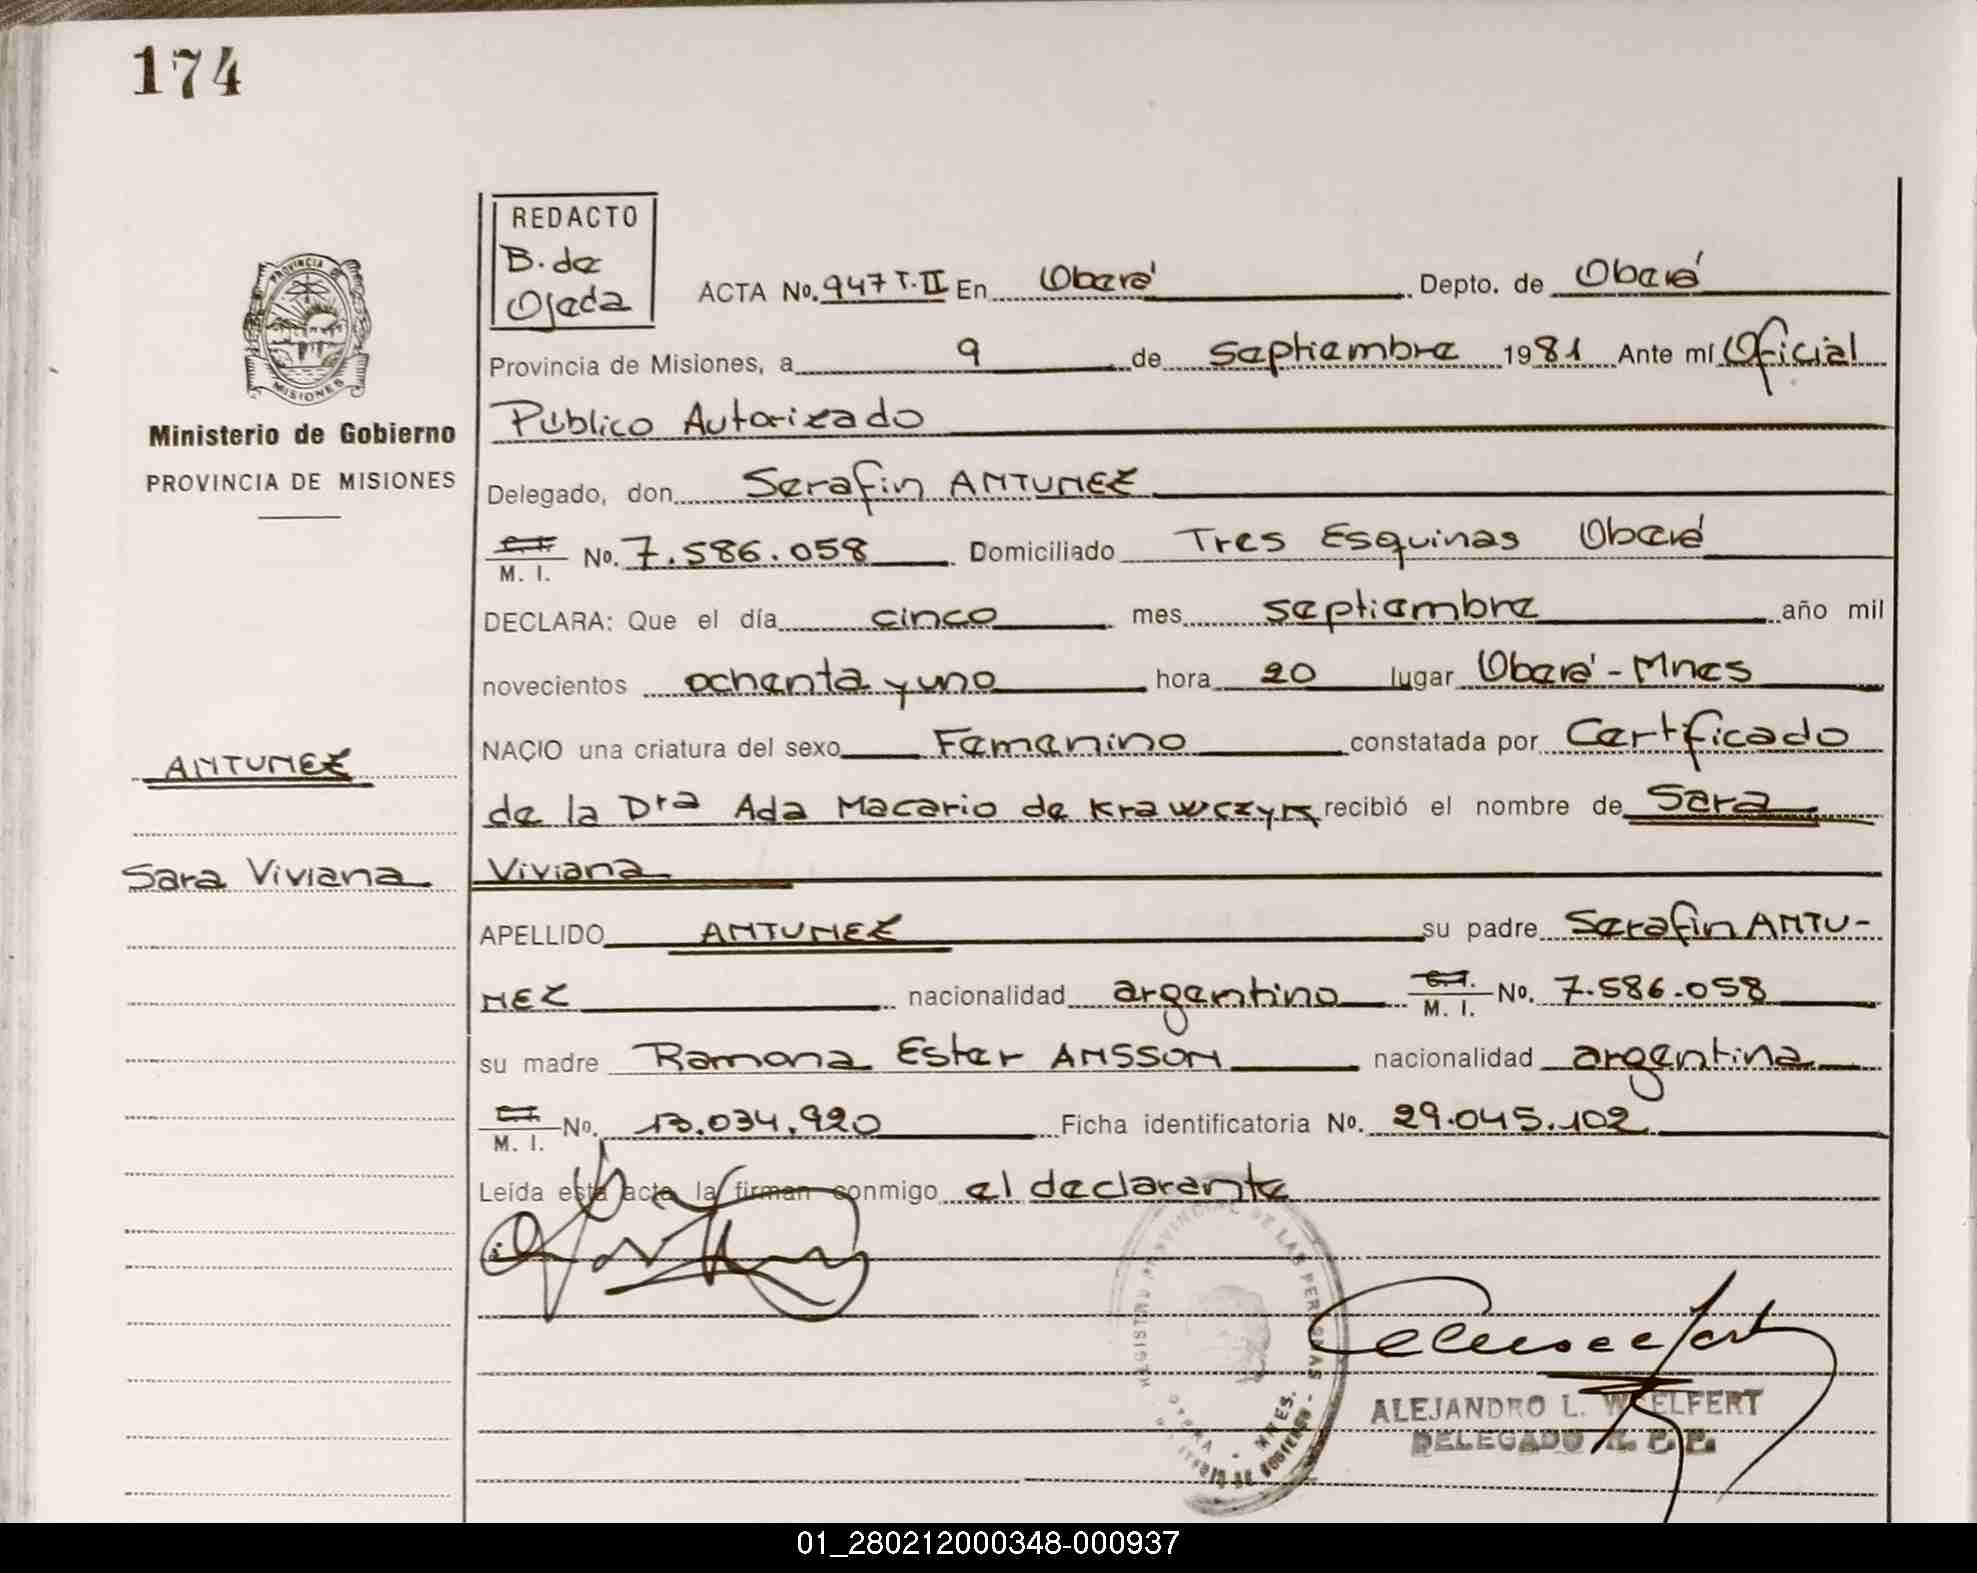 174
REDACTO
B. de
Ojeda
PROVINCIA DE
MISIONES
Ministerio de Gobierno
PROVINCIA DE MISIONES
ACTA No. 947 T. II En Oberá Depto. de Oberá
Provincia de Misiones, a 9 de septiembre 1981 Ante mí Oficial
Público Autorizado
Delegado, don Serafin ANTUNEZ
C. I. M. I. No. 7.586.058 Domiciliado Tres Esquinas Oberá
DECLARA: Que el día cinco mes septiembre año mil
novecientos ochenta y uno hora 20 lugar Oberá - Mnes
NACIO una criatura del sexo Femenino constatada por Certficado
de la Dra Ada Macario de Krawczyk recibió el nombre de Sara
Viviana
ANTUNEZ
Sara Viviana
APELLIDO ANTUNEZ su padre Serafin ANTU-
NEZ nacionalidad argentino C. I. M. I. No. 7.586.058
su madre Ramona Ester ANSSON nacionalidad argentina
C. I. M. I. No. 13.034.920 Ficha identificatoria No. 29.045.102
Leída esta acta la firman conmigo el declarante
REGISTRO PROVINCIAL DE LAS PERSONAS
OBERA - MNES.
ALEJANDRO L. WOELFERT
DELEGADO R. P. P.
01_280212000348-000937